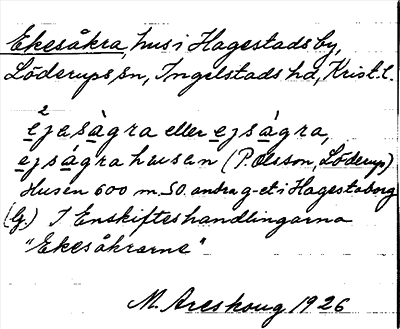 Ekesåkra, hus i Hagestads by,
Löderups sn, Ingelstads hd, Krist. l.
2
ejasågra eller ejsågra,
ejsågrahusen (P. Olsson, Löderup)
Husen 600 m. SO. andra g-et i Hagestaborg
(G.) I Enskifteshandlingarna
"Ekesåkrarne"
M. Areskoug 1926